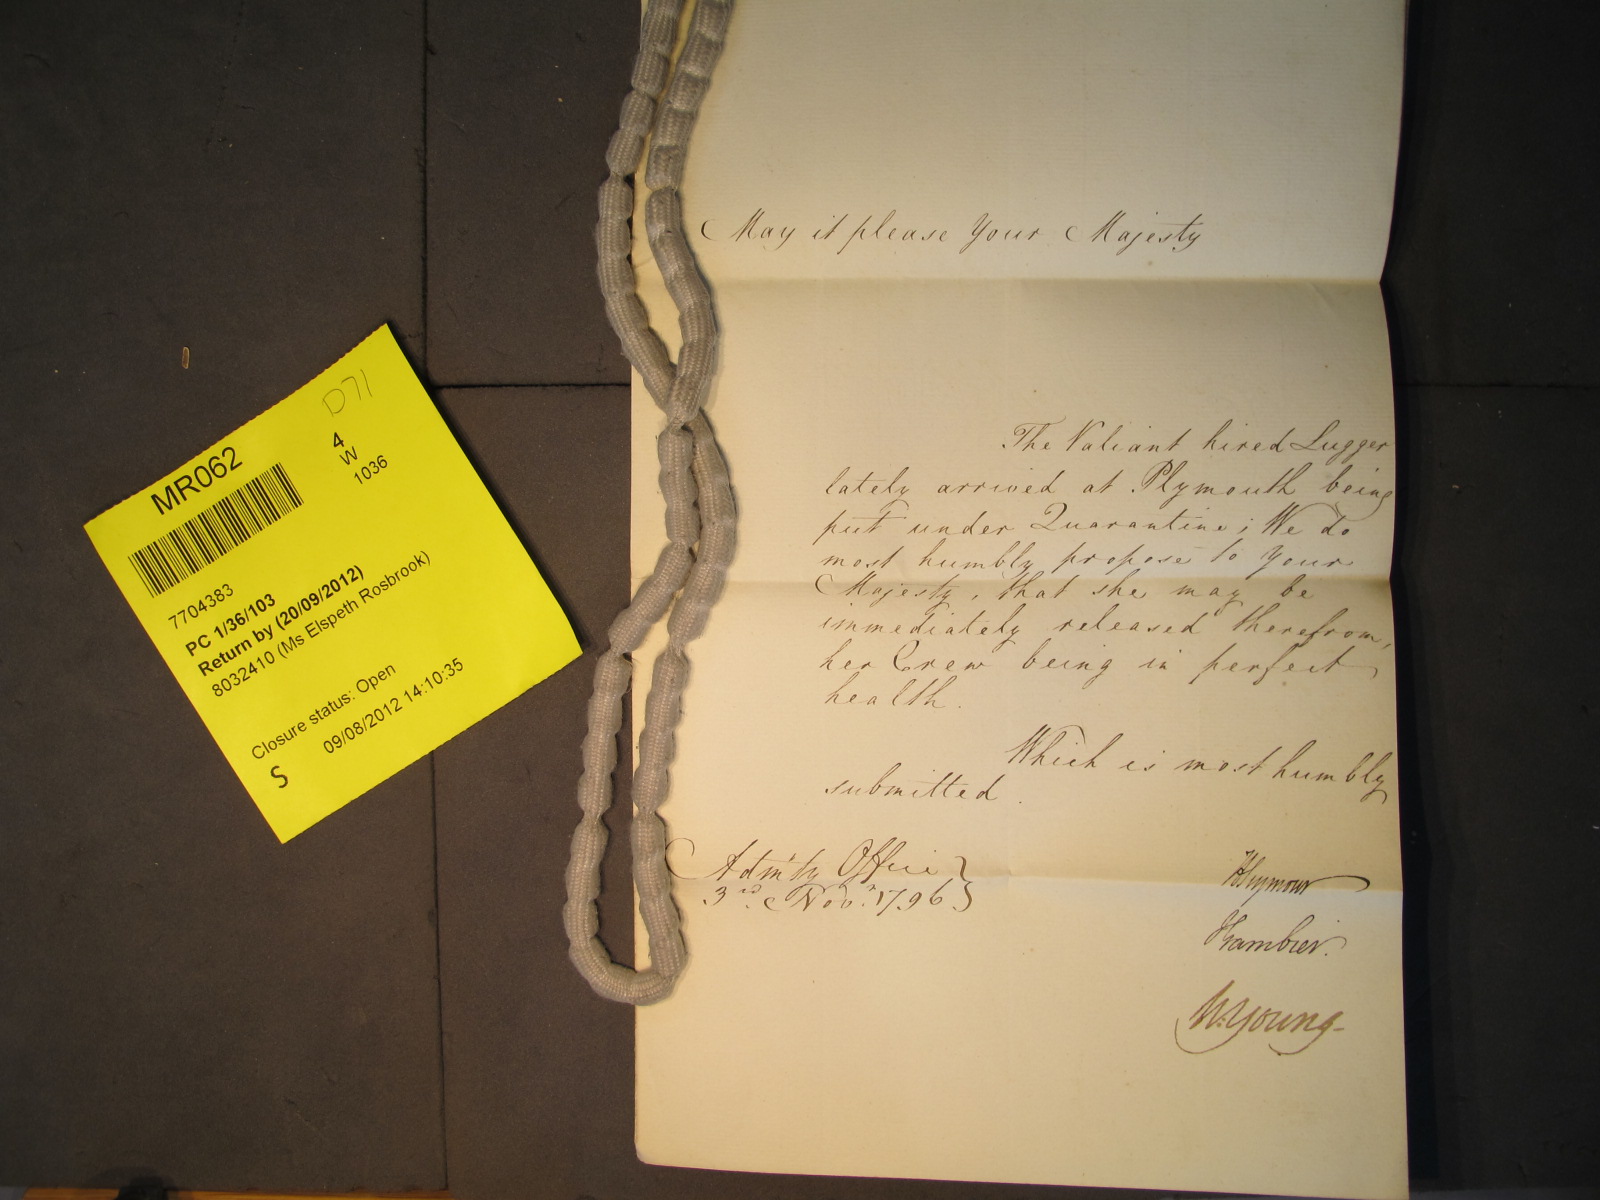 D71
MR062
4
W
1036
7704383
PC 1/36/103
Return by (20/09/2012)
8032410 (Ms Elspeth Rosbrook)
Closure status: Open
09/08/2012 14:10:35
S
May it please Your Majesty
The Valiant hired Lugger
lately arrived at Plymouth being
put under Quarantine; We do
most humbly propose to Your
Majesty, that she may be
immediately released therefrom,
her Crew being in perfect
health.
Which is most humbly
submitted.
Adm'ty Office
3rd. Novr. 1796
HSeymour
JGambier.
W. Young